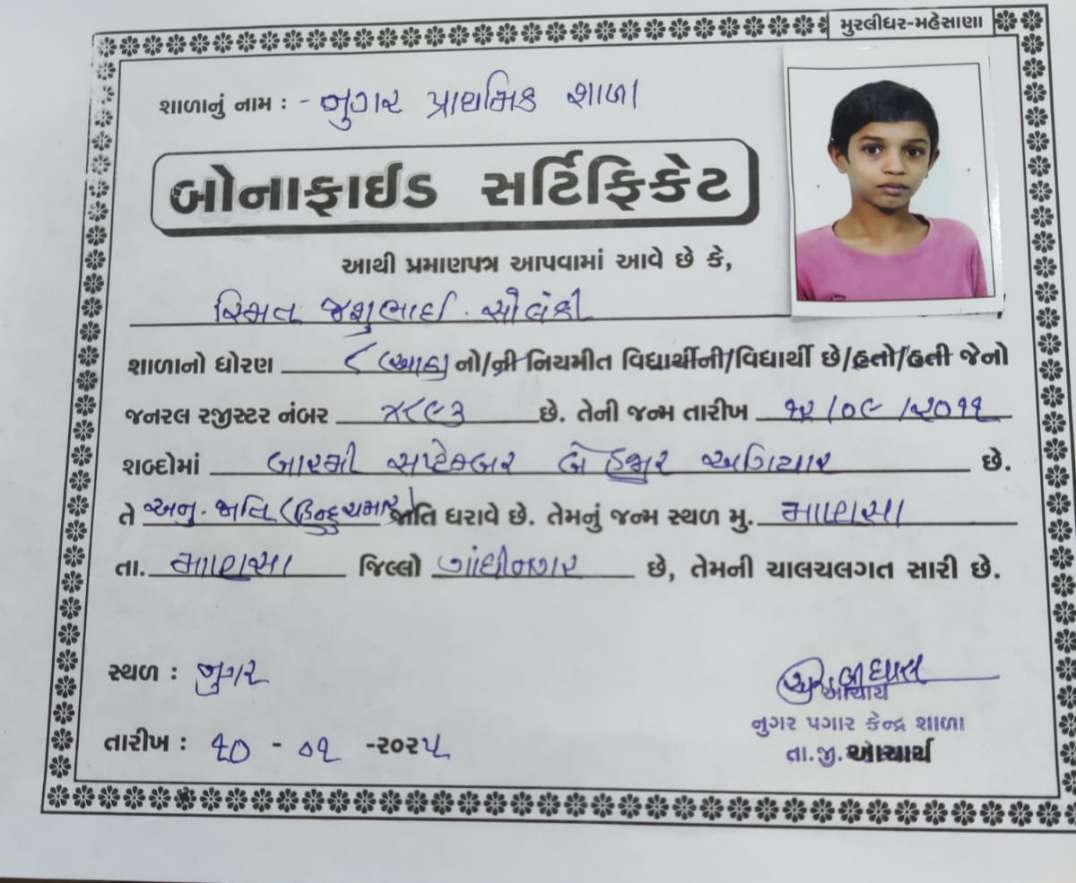 મુરલીધર-મહેસાણા
શાળાનું નામ : - નુગર પ્રાથમિક શાળા
બોનાફાઈડ સર્ટિફિકેટ
આથી પ્રમાણપત્ર આપવામાં આવે છે કે,
સ્મિત જશુભાઈ. સોલંકી
શાળાનો ધોરણ ૮ (આઠ) નો/ની નિયમીત વિદ્યાર્થીની/વિદ્યાર્થી છે/હતો/હતી જેનો
જનરલ રજીસ્ટર નંબર ૪૮૯૩ છે. તેની જન્મ તારીખ ૧૨/૦૯/૨૦૧૧
શબ્દોમાં બારમી સપ્ટેમ્બર બે હજાર અગિયાર છે.
તે અનુ. જાતિ (હિન્દુ ચમાર) જાતિ ધરાવે છે. તેમનું જન્મ સ્થળ મુ. માણસા
તા. માણસા જિલ્લો ગાંધીનગર છે, તેમની ચાલચલગત સારી છે.
સ્થળ : નુગર
આચાર્ય
નુગર પગાર કેન્દ્ર શાળા
તારીખ : ૧૦ - ૦૧ -૨૦૨૫
તા.જી. આચાર્ય